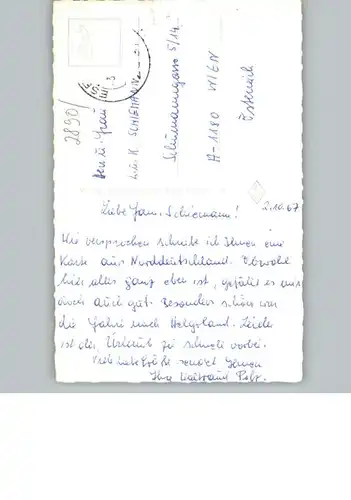 2890/
Herrn u. Frau
SCHIEMANN
5/14
A-1180 WIEN
Österreich
Liebe Fam. Schiemann! 2.10.67
Wie versprochen schreibe ich Ihnen eine
Karte aus Norddeutschland. Obwohl
hier alles ganz eben ist, gefällt es mir
doch auch gut. Besonders schön war
die Fahrt nach Helgoland. Leider
ist der Urlaub zu schnell vorbei.
Viele liebe Grüße sendet Ihnen
Ihre Waltraud